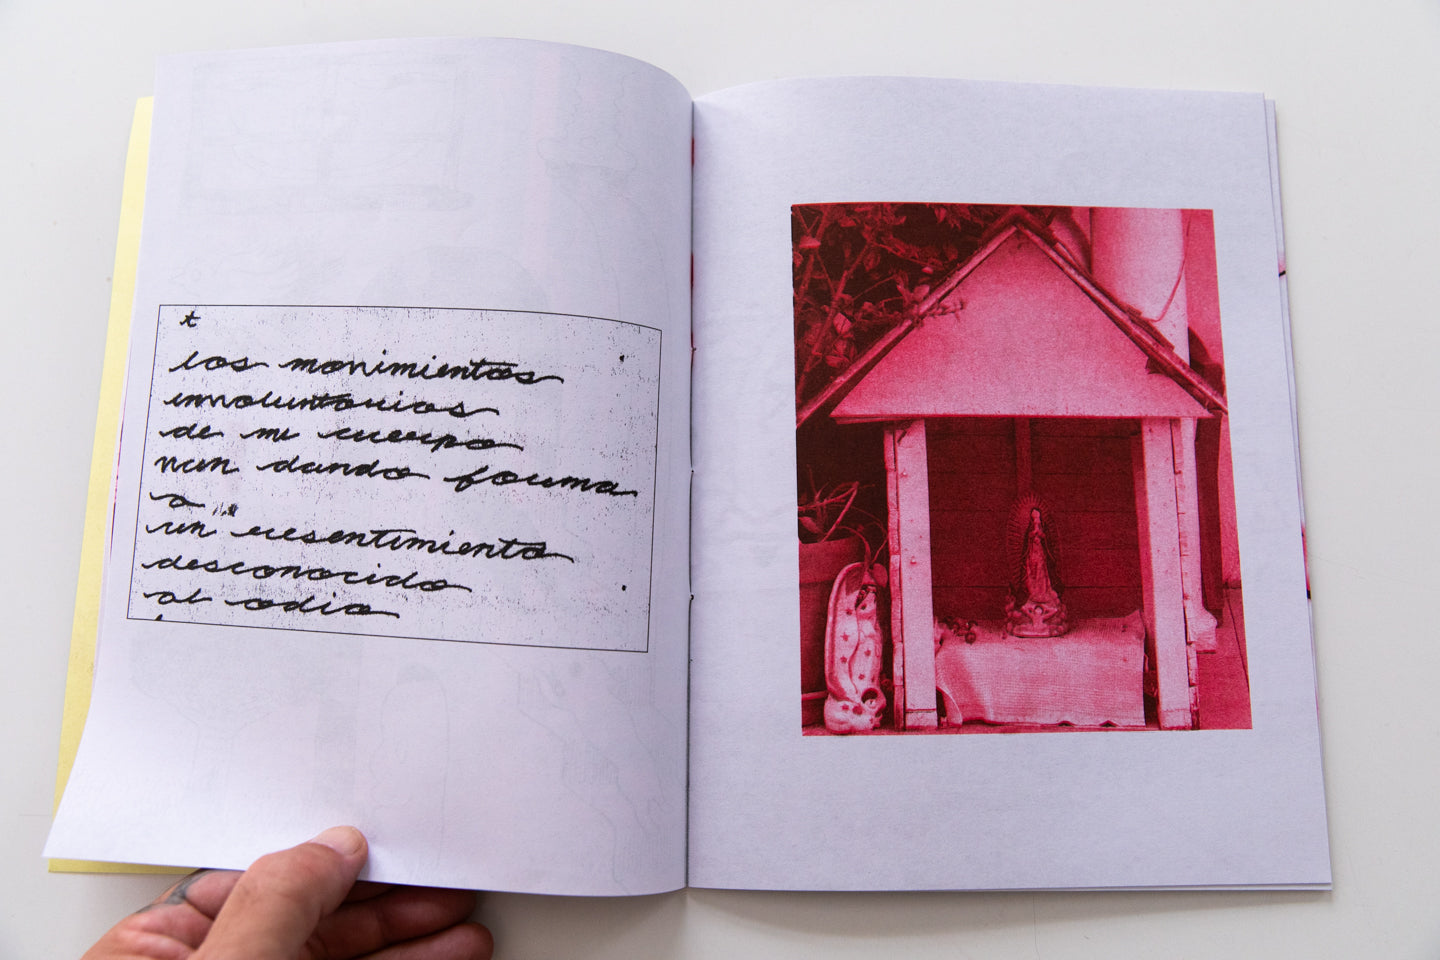 t
los movimientos
involuntarios
de mi cuerpo
van dando forma
a
un resentimiento
desconocido
al odio